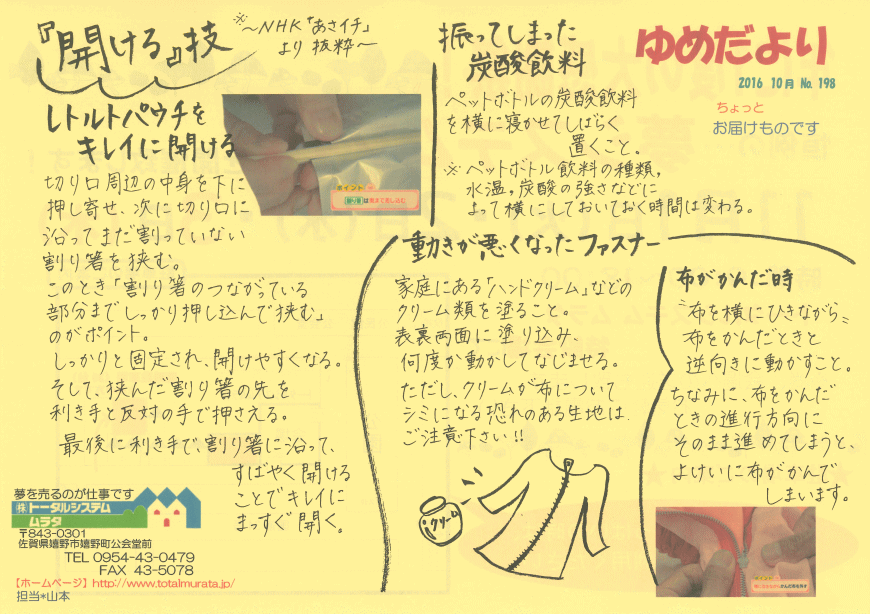 『開ける』技
※～NHK「あさイチ」
より抜粋～
レトルトパウチを
キレイに開ける
切り口周辺の中身を下に
押し寄せ、次に切り口に
沿ってまだ割っていない
割り箸を挟む。
このとき「割り箸のつながっている
部分までしっかり押し込んで挟む」
のがポイント。
しっかりと固定され、開けやすくなる。
そして、挟んだ割り箸の先を
利き手と反対の手で押さえる。
最後に利き手で、割り箸に沿って、
すばやく開ける
ことでキレイに
まっすぐ開く。
ポイント
夢を売るのが仕事です
㈱トータルシステム
ムラタ
〒843-0301
佐賀県嬉野市嬉野町公会堂前
TEL 0954-43-0479
FAX 43-5078
【ホームページ】http://www.totalmurata.jp/
担当*山本
振ってしまった
炭酸飲料
ペットボトルの炭酸飲料
を横に寝かせてしばらく
置くこと。
※ペットボトル飲料の種類,
水温,炭酸の強さなどに
よって横にしておいておく時間は変わる。
ゆめだより
2016 10月 No. 198
ちょっと
お届けものです
動きが悪くなったファスナー
家庭にある「ハンドクリーム」などの
クリーム類を塗ること。
表裏両面に塗り込み、
何度か動かしてなじませる。
ただし、クリームが布について
シミになる恐れのある生地は
ご注意下さい!!
クリーム
布がかんだ時
〝布を横にひきながら〟
布をかんだときと
逆向きに動かすこと。
ちなみに、布をかんだ
ときの進行方向に
そのまま進めてしまうと、
よけいに布がかんで
しまいます。
ポイント